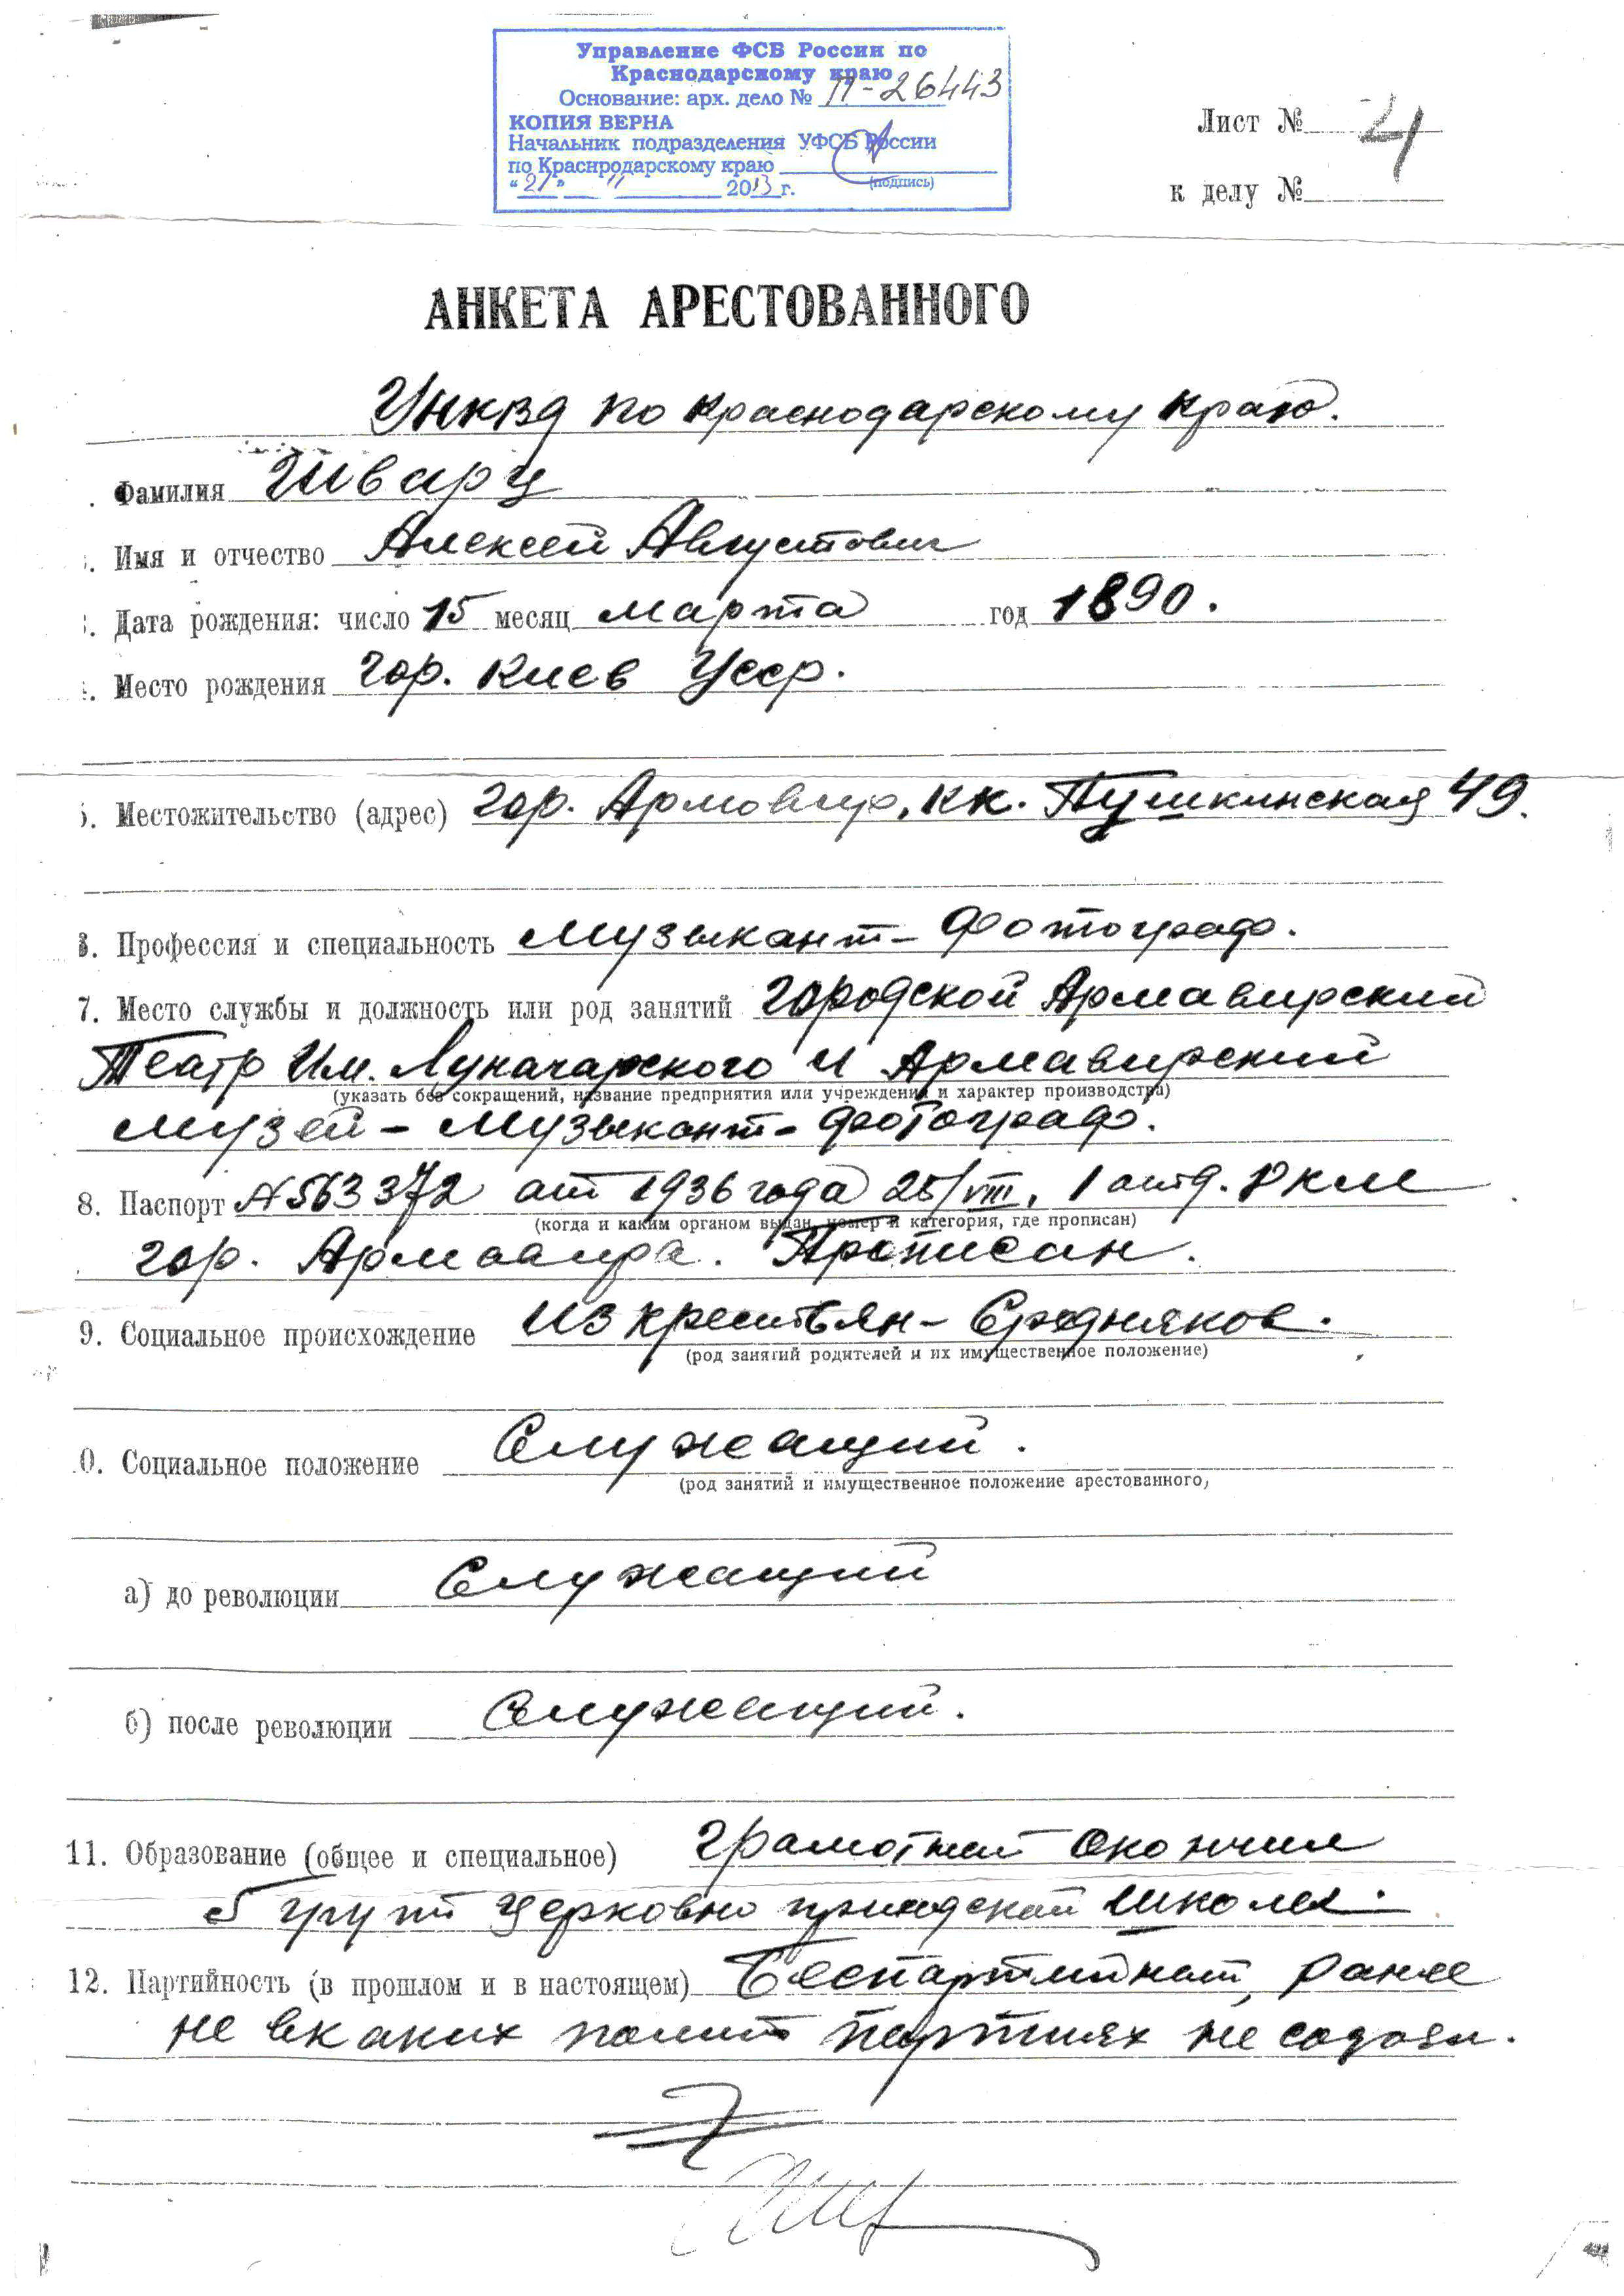 Управление ФСБ России по
Краснодарскому краю
Основание: арх. дело № П-26443
КОПИЯ ВЕРНА
Начальник подразделения УФСБ России
по Краснродарскому краю
"21" 11 2013 г. (подпись)
Лист № 4
к делу №
АНКЕТА АРЕСТОВАННОГО
Унквд по краснодарскому краю.
Фамилия Шварц
Имя и отчество Алексей Августович
Дата рождения: число 15 месяц марта год 1890.
Место рождения гор. Киев Усср.
Местожительство (адрес) гор. Армавир, кк. Пушкинская 49.
Профессия и специальность Музыкант-Фотограф.
7. Место службы и должность или род занятий городской Армавирский
Театр Им. Луначарского и Армавирский
(указать без сокращений, название предприятия или учреждения и характер производства)
музей - музыкант-фотограф.
8. Паспорт № 563372 от 1936 года 25/VIII, 1 отд. РКМ
(когда и каким органом выдан, номер и категория, где прописан)
гор. Армавира. Прописан.
9. Социальное происхождение Из крестьян-Середняков.
(род занятий родителей и их имущественное положение)
0. Социальное положение Служащий.
(род занятий и имущественное положение арестованного)
а) до революции Служащий
б) после революции Служащий.
11. Образование (общее и специальное) грамотный окончил
5 групп церковно приходской школы.
12. Партийность (в прошлом и в настоящем) Беспартийный, ранее
не вкаких полит партиях не состоял.